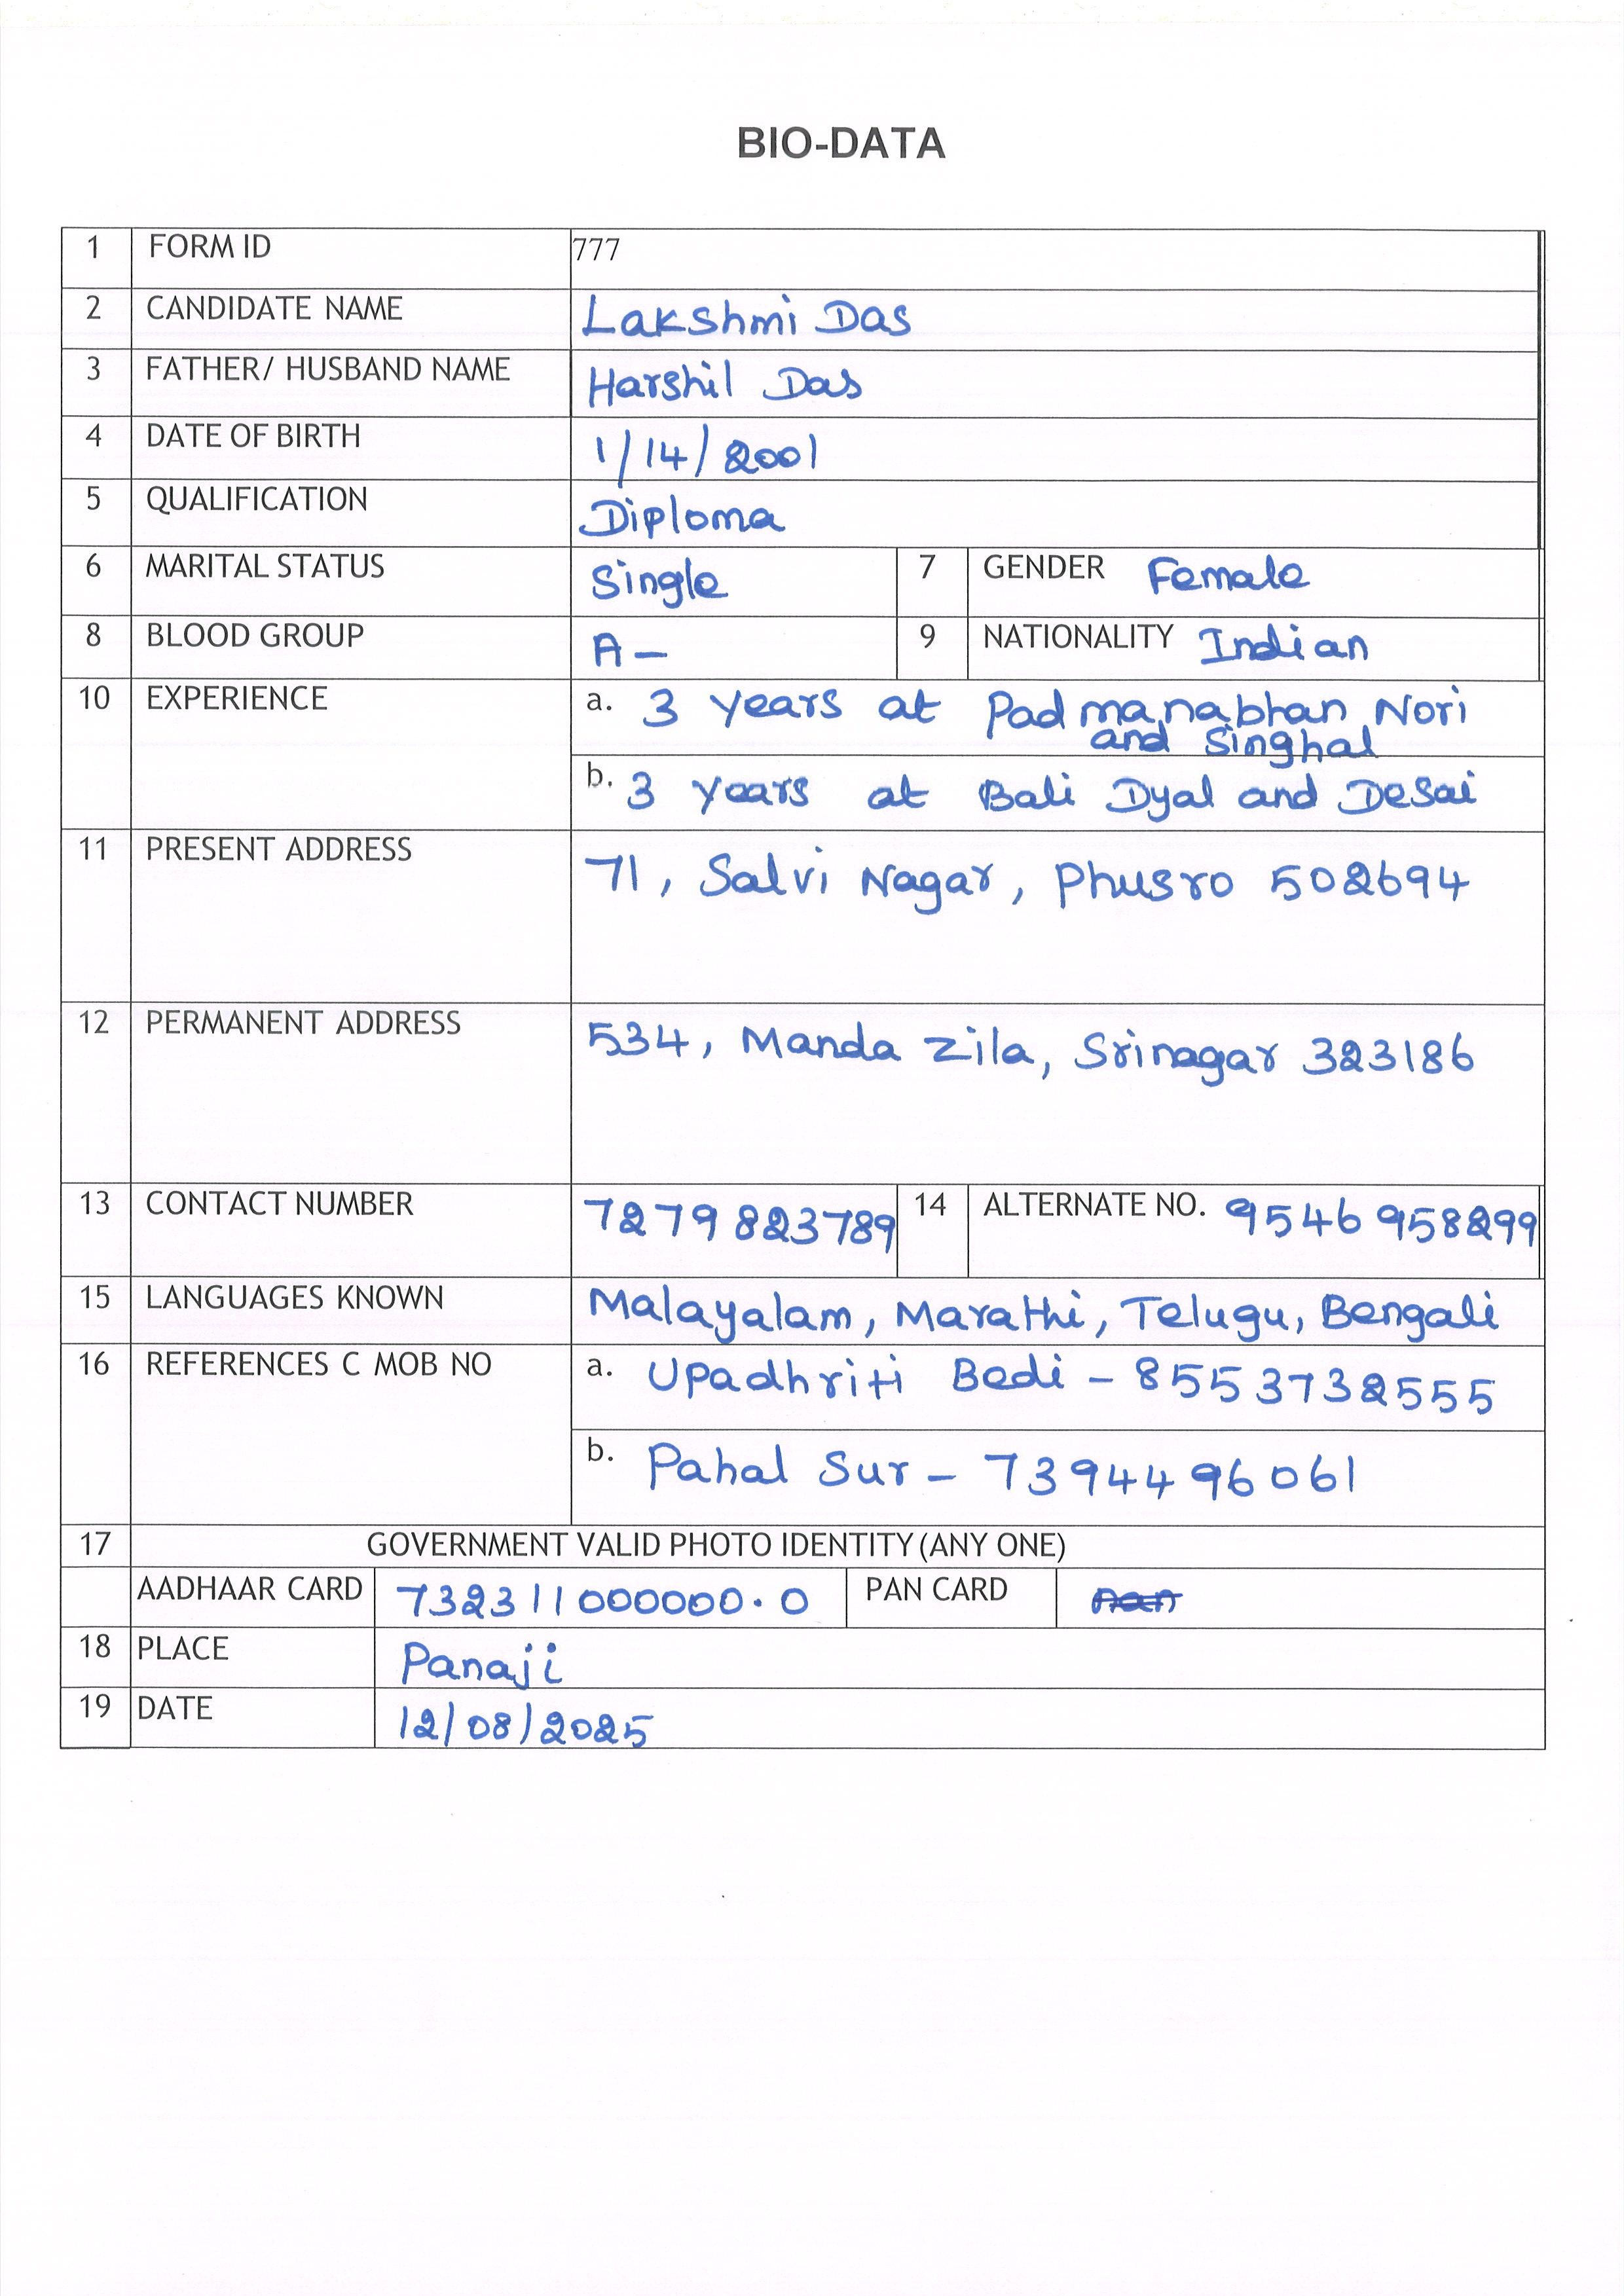 BIO-DATA
1 FORM ID 777
2 CANDIDATE NAME Lakshmi Das
3 FATHER/ HUSBAND NAME Harshil Das
4 DATE OF BIRTH 1/14/2001
5 QUALIFICATION Diploma
6 MARITAL STATUS Single 7 GENDER Female
8 BLOOD GROUP A- 9 NATIONALITY Indian
10 EXPERIENCE a. 3 years at Padmanabhan, Nori
and Singhal
b. 3 years at Bali Dyal and Desai
11 PRESENT ADDRESS 71, Salvi Nagar, Phusro 502694
12 PERMANENT ADDRESS 534, Manda Zila, Srinagar 323186
13 CONTACT NUMBER 7279823789 14 ALTERNATE NO. 9546958299
15 LANGUAGES KNOWN Malayalam, Marathi, Telugu, Bengali
16 REFERENCES C MOB NO a. Upadhriti Bedi - 8553732555
b. Pahal Sur - 7394496061
17 GOVERNMENT VALID PHOTO IDENTITY (ANY ONE)
AADHAAR CARD 732311000000.0 PAN CARD nan
18 PLACE Panaji
19 DATE 12/08/2025